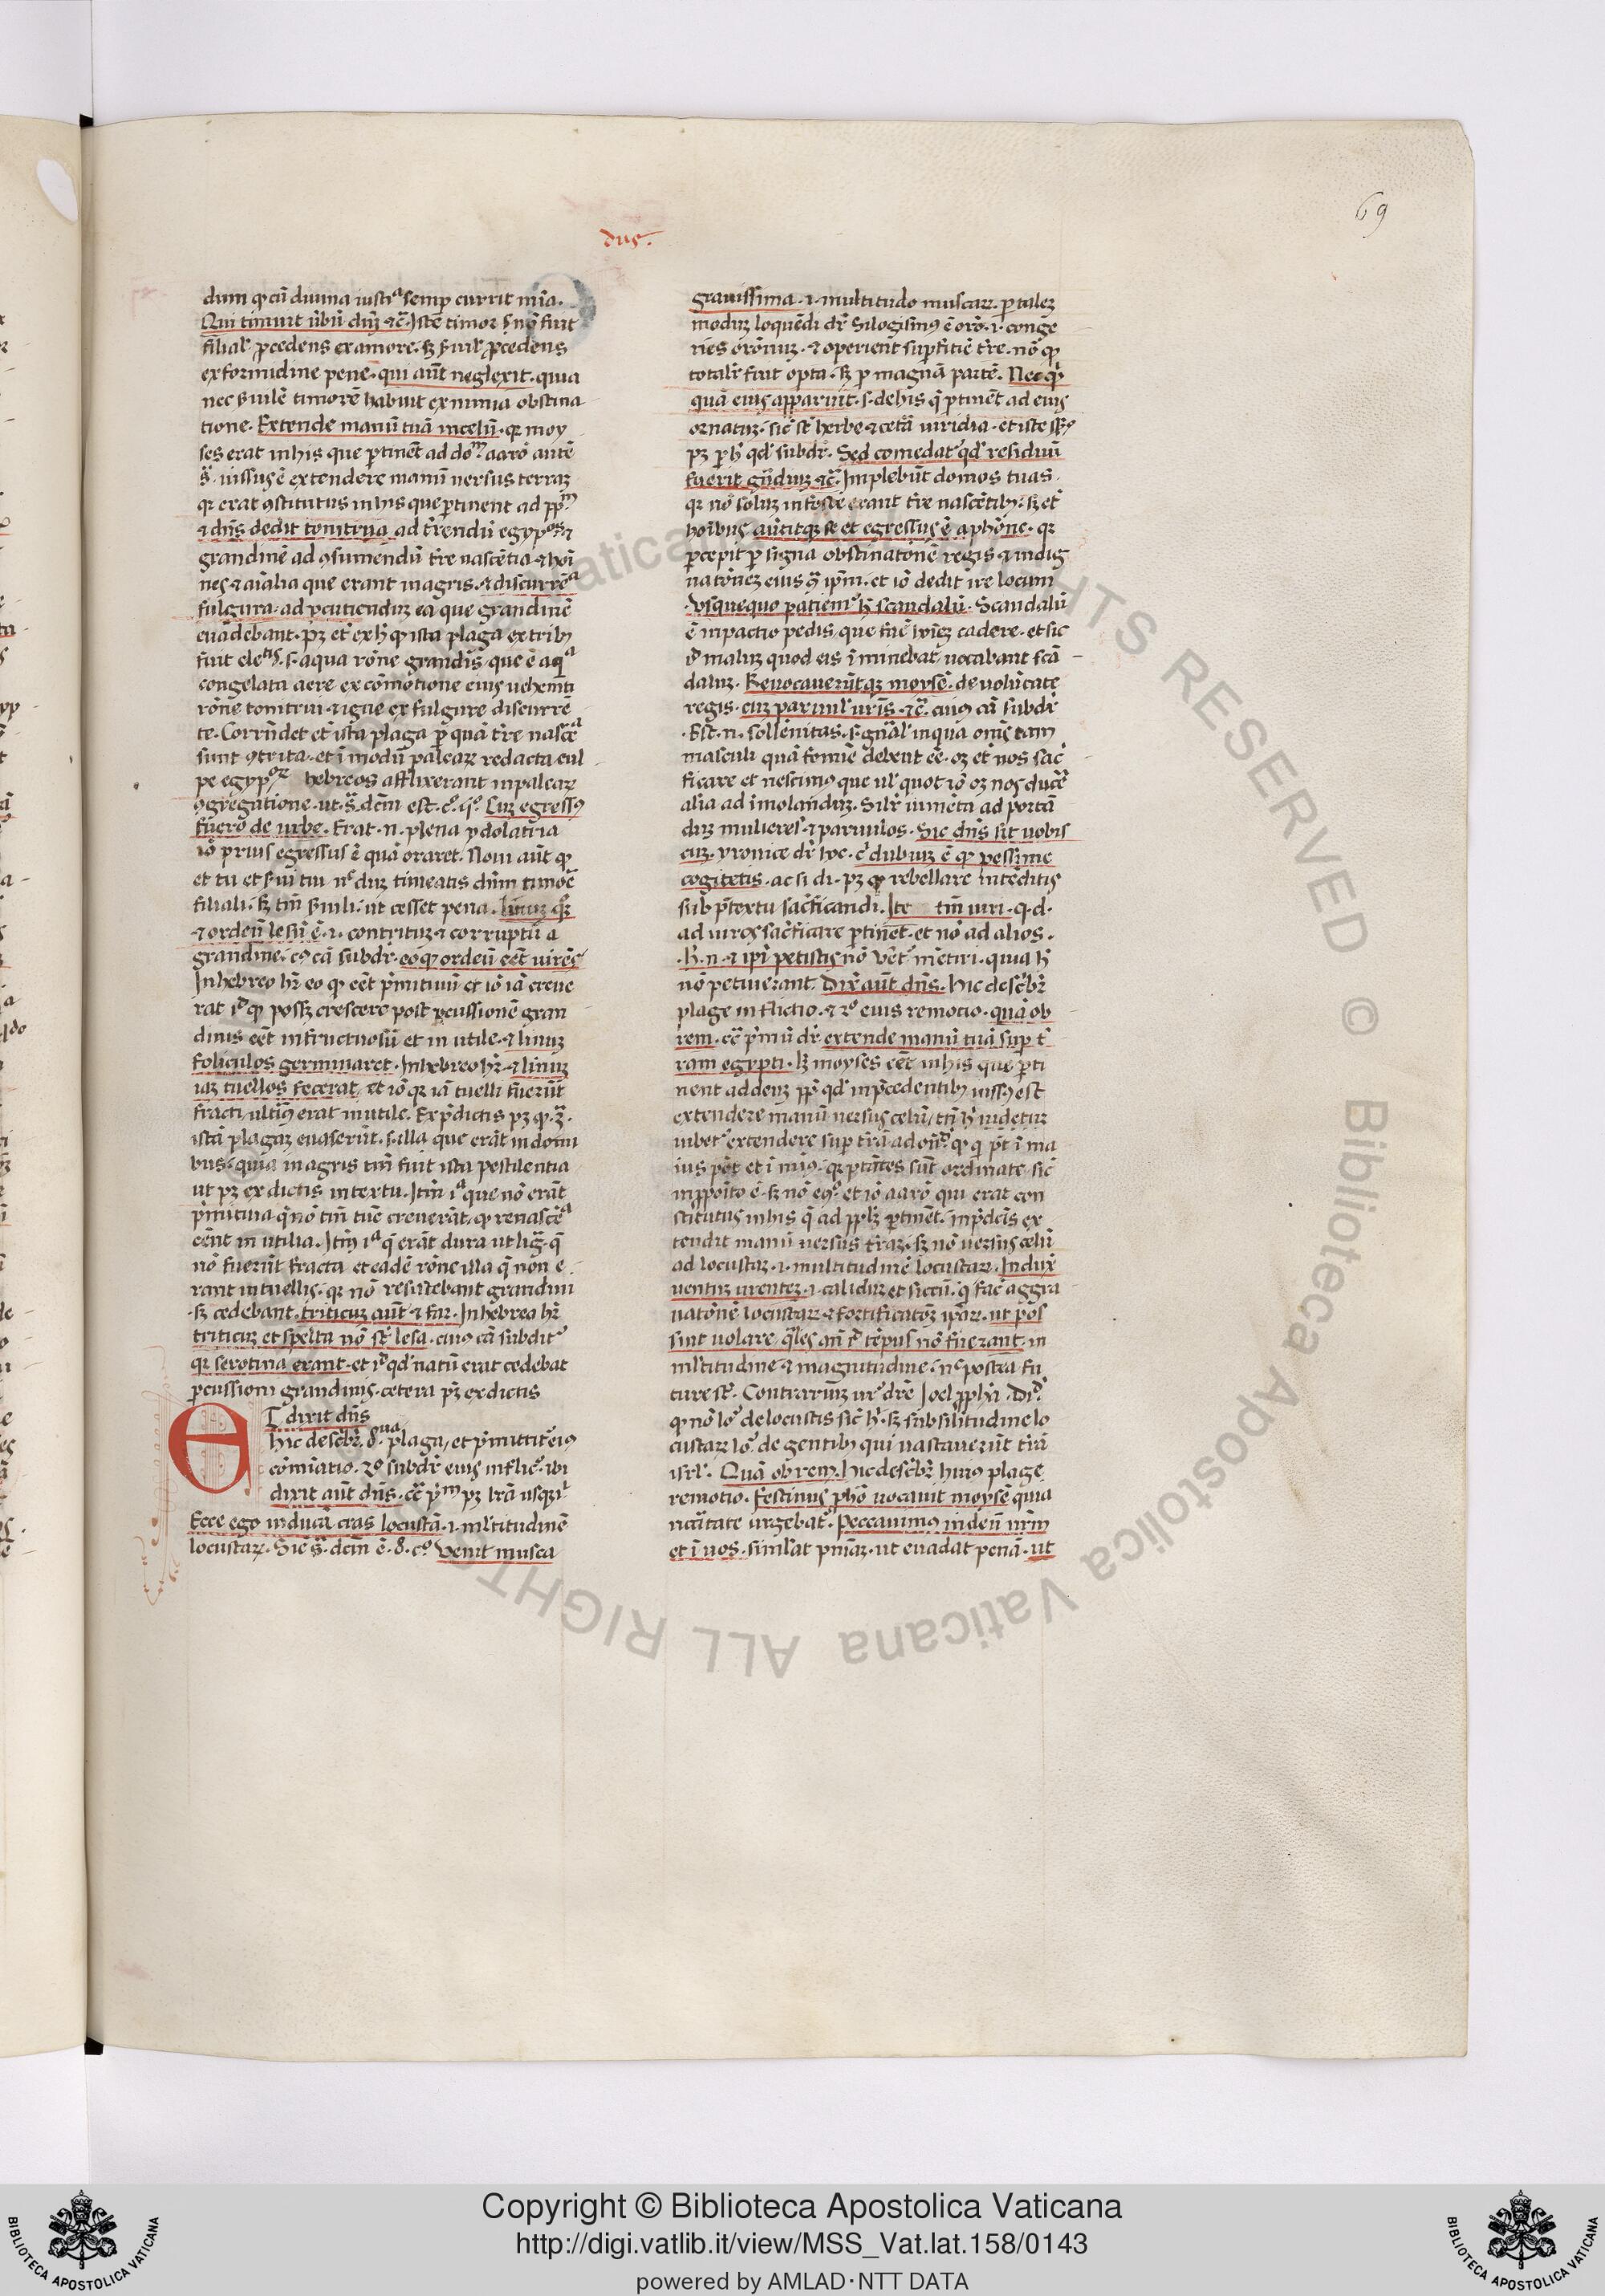 69
dus.
dum ꝙ cū diuina iusticᵃ semꝑ currit mīa.
Qui timuit ūbū dnī ⁊c̄. Iste timor nō fuit
filial' ꝓcedens ex amore. sꝫ ẜuil' ꝓcedens
ex formidine pene. qui aūt neglexit. quia
nec ẜuilē timorē habuit ex nimia obstina
tione. Extende manū tuā in celū. qꝛ moy
ses erat in his que ꝑtinēt ad dōᵐ. aarō autē
s̄. iussus ē extendere manū uersus terraꝫ
qꝛ erat ꝯstitutus in his que ꝑtinent ad pp̄ᵐ
⁊ dn̄s dedit tonitrua ad t̄rendū egypᵒˢ ⁊
grandinē ad ꝯsumendū t̄re nascētia ⁊ hoī
nes ⁊ aīalia que erant in agris. ⁊ discurrēᵃ
fulgura. ad ꝑcutienduꝫ ea que grandinē
euadebant. pꝫ et̄ ex hͦ ꝙ ista plaga ex tribꝰ
fuit eleᵗⁱˢ. s. aqua rōne grandis, que ē aqᵃ
congelata aere ex cōmotione eius uehemti
rōne tonitrui. ⁊ igne ex fulgure discurrē
te. Corrn̄det et̄ ista plaga ꝑ quā t̄re nascēᵃ
sunt ꝯtrita. et ī modū paleaꝝ redacta cul
pe egypᵒꝝ hebreos afflixerant in paleaꝝ
ꝯgregatione. ut. s̄. dcm̄ est. cͦ. 5ͦ. Cuꝫ egressꝰ
fuero de urbe. Erat. n. plena ydolatria
iō prius egressus ē quā oraret. Noui aūt ꝙ
et tu et ẜui tui nͨduꝫ timeatis dn̄m timoē
filiali. sꝫ tm̄ ẜuili. ut cesset pena. linuꝫ qꝫ
⁊ ordeū lesū ē. i. contrituꝫ ⁊ corruptū a
grandine. cꝰ cā subdr̄. eo ꝙ ordeū eēt uirēs
In hebreo hr̄ eo ꝙ eēt p̄mitiuū et iō iā creue
rat iᵈ ꝙ posꝫ crescere post ꝑcussionē gran
dinis eēt infructuosū et inutile. ⁊ linuꝫ
foliculos germinaret. In hebreo hr̄. ⁊ linuꝫ
iaꝫ tuellos fecerat, et iō qꝛ iā tuelli fuerūt
fracti, ultīꝰ erat inutile. Ex p̄dictis pꝫ ꝙ.
istā plagaꝫ euaserūt. s. illa que erāt in domi
bus. quia in agris tm̄ fuit ista pestilentia
ut pꝫ ex dictis in textu. Itm̄ iᵃ que nō erāt
p̄mitiua q̄ nō tm̄ tūc creuerāt, ꝙ renascēᵃ
eēnt inutilia. Itm̄ iᵃ q̄ erāt dura ut lig̃. q̄
nō fuerūt fracta et eadē rōne illa q̄ non e
rant in tuellis. qꝛ nō resistebant grandini
sꝫ cedebant. triticuꝫ aūt ⁊ far. In hebreo hr̄
triticuꝫ et spelta nō st̄ lesa. cuiꝰ cā subditʳ
qꝛ serotina erant. et iᵈ qd' natū erat cedebat
ꝑcussioni grandinis. cetera pꝫ ex dictis
ET dixit dn̄s
hic describr̄. 8ᵘᵃ plaga, et p̄mittitʳ eiꝰ
cōmīatio. 2ͦ subdr̄ eius inflicͦ. ibi
dixit aūt dn̄s. cͨ p̄ᵐ pꝫ lrā usqꝫ iᶦ
Ecce ego inducā cras locustā. i. ml'titudinē
locustaꝝ. Sic s̄. dcm̄ ē. 8. cͦ. Venit musca
grauissima. i. multitudo muscaꝝ. ꝑ taleꝫ
moduꝫ loquēdi dr̄ Silogismꝰ ē orō. i. conge
ries orōnuꝫ. ⁊ operient suꝑficiē t̄re. nō ꝙ
totalr̄ fuit opta. sꝫ ꝑ magnā partē. Nec qͥc
quā eius apparuit. s. de his q̄ ꝑtinēt ad eius
ornatuꝫ. sic̄ st̄ herbe ⁊ cetā uiridia. et iste sēsꝰ
pꝫ ꝑ hͦ qd' subdr̄. Sed comedatʳ qd' residuū
fuerit gn̄diuꝫ ⁊c̄. Implebūt domos tuas.
qꝛ nō soluꝫ infeste erant t̄re nascētibꝰ. sꝫ et̄
hoībus. aūtitqꝫ se et egressus ē a phōne. qꝛ
ꝑcepit ꝑ signa obstinatōnē regis ⁊ indig
natōneꝫ eius ꝯ̄ ip̄m. et iō dedit ire locum
Vsquequo patiemʳ hͦ scandalū. Scandalū
ē inpactio pedis, que fac̄ hoīeꝫ cadere. et sic
iᵈ maluꝫ quod eis īminebat, uocabant scā
daluꝫ. Reuocauerūtqꝫ moysē. de uolūtate
regis. cuꝫ paruul' uris̄. ⁊c̄. cuiꝰ cā subdr̄
Est. n. sollēnitas. s. gn̄al' in qua om̄s tam
masculi quā femīe debent eē. oꝫ et̄ nos sac̄
ficare et nescimꝰ que ul' quot iō oꝫ nos ducē
alīa ad īmolanduꝫ. Silr̄ iumēta ad portā
duꝫ mulieres. ⁊ paruulos. Sic dn̄s sit uobis
cuꝫ. yronice dr̄ hoc. cͥ dubiuꝫ ē ꝙ pessime
cogitetis. ac si di. pꝫ ꝙ rebellare intēditis
sub p̄textu sac̄ficandi. Ite tm̄ uiri. q. d.
ad uiros sac̄ficare ꝑtinet. et nō ad alios.
hͦ. n. ⁊ ip̄i petistis nō uēt mētiri. quia hͦ
nō petiuerant. Dix̄ aūt dn̄s. hic describr̄
plage inflictio. ⁊ 2ͦ eius remotio. quā ob
rem. cͨ p̄mū dr̄ extende manū tuā suꝑ t̄
ram egypti. lꝫ moyses eēt in his que ꝑti
nent ad deuꝫ pp̄ qd' in p̄cedentibꝰ iussꝰ est
extendere manū uersus celū, tn̄ hͥ uidetur
iubetʳ extendere suꝑ t̄rā ad on̄ᵈ. ꝙ q p̄t ī ma
ius pōt et ī minꝰ. qꝛ ptātes sūt ordinate, sic̄
in ppōito ē. sꝫ nō eꝯͦ. et iō aarō qui erat con
stitutus in his q̄ ad pplꝫ ꝑtinēt. in p̄dcis̄ ex
tendit manū uersus t̄raꝫ. sꝫ nō uersus celū
ad locustaꝫ. i. multitudinē locustaꝝ. Indux̄
uentuꝫ urenteꝫ. i. caliduꝫ et siccū. q̄ fac̄ aggra
uatōnē locustaꝝ ⁊ fortificatōꝫ ip̄aꝝ. ut p̄os̄
sint uolare q̄les an̄ iᵈ tēpus nō fuerant. in
ml'titudine ⁊ magnitudine. nͨ postea fu
ture st̄. Contrariuꝫ ur̄ dr̄e Joel pph'a. Diᵈ.
ꝙ nō loʳ de locustis sic̄ hͥ. sꝫ sub silitudine lo
custaꝝ loʳ de gentibꝰ qui uastauerūt t̄rā
isrl'. Quā ob rem. hic describr̄ huiꝰ plage
remotio. Festinus phō uocauit moysē quia
nc̄itate urgebatʳ. Peccauimus in deū urm̄
et ī uos. simlat pniāꝫ. ut euadat penā. ut
Copyright © Biblioteca Apostolica Vaticana
http://digi.vatlib.it/view/MSS_Vat.lat.158/0143
powered by AMLAD·NTT DATA